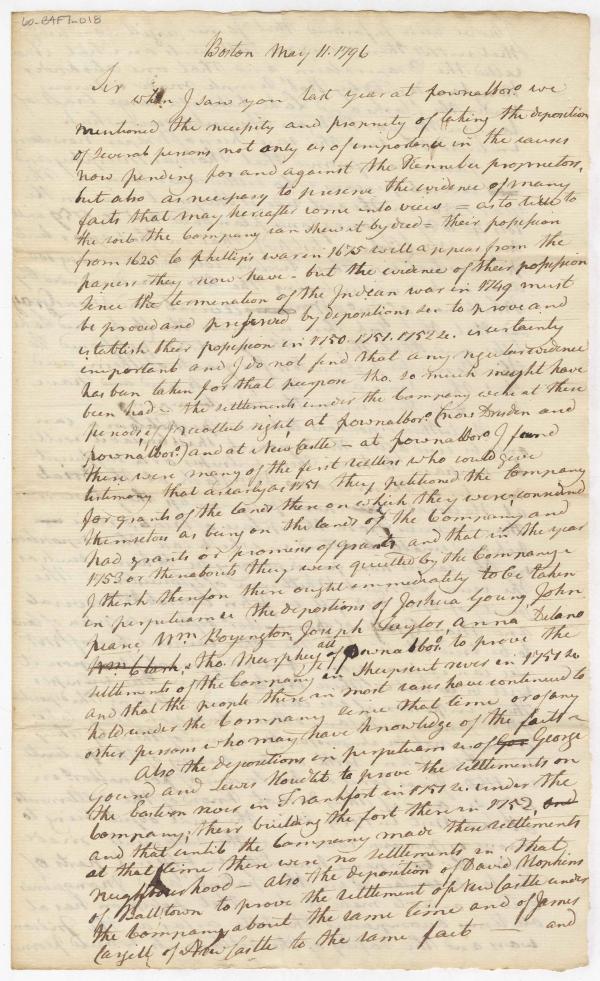 60-BAFT-018
Boston May 11. 1796
Sir
when I saw you last year at pownalboro. we
mentioned the necessity and propriety of taking the deposition
of several persons not only as of importance in the causes
now pending for and against the Kennebec proprietors,
but also as necessary to preserve the evidence of many
facts that may hereafter come into view = as to title to
the soil the Company can shew it by deed = their possession
from 1625 to phillips war in 1675 will appear from the
papers they now have - but the evidence of their possession
since the termenation of the Indian war in 1749 must
be proved and preserved by depositions &c to prove and
establish their possession in 1750. 1751. 1752 &c. is certainly
important and I do not find that any regular evidence
has been taken for that purpose tho. so much might have
been had - the settlements under the Company were at these
periods, if I recollect right, at pownalboro. (now Dresden and
pownalboro.) and at New Castle - at pownalboro. I found
there were many of the first settlers who could give
testimony that as early as 1751 they petitioned the Company
for grants of the lands there on which they were, considered
themselves as being on the lands of the Company, and
had grants or promises of grants and that in the year
1753 or thereabouts they were quieted by the Company =
I think therefore there ought immediately to be taken
in perpetuam &c the depositions of Joshua Young, John
peane, Wm. Boyington, Joseph Taylor anna Delano
Wm. Clark, & tho. Murphey all of pownalboro. to prove the
settlements of the Company in Sheepscut river in 1751 &c
and that the people there in most cases have continued to
hold under the Company since that time or of any
other persons who may have knowledge of the facts -
Also the depositions in perpetuam &c of Geo George
Goued and Lewis Houdlet to prove the settlements on
the Eastern river in Frankfort in 1751 &c. under the
Company, their building the fort there in 1752, and
and that until the Company made these settlements
at that time there were no settlements in that
neighbourhood - also the deposition of David Hopkins
of Balltown to prove the settlement of New Castle under
the Company about the same time and of James
Cargill of New Castle to the same fact - and